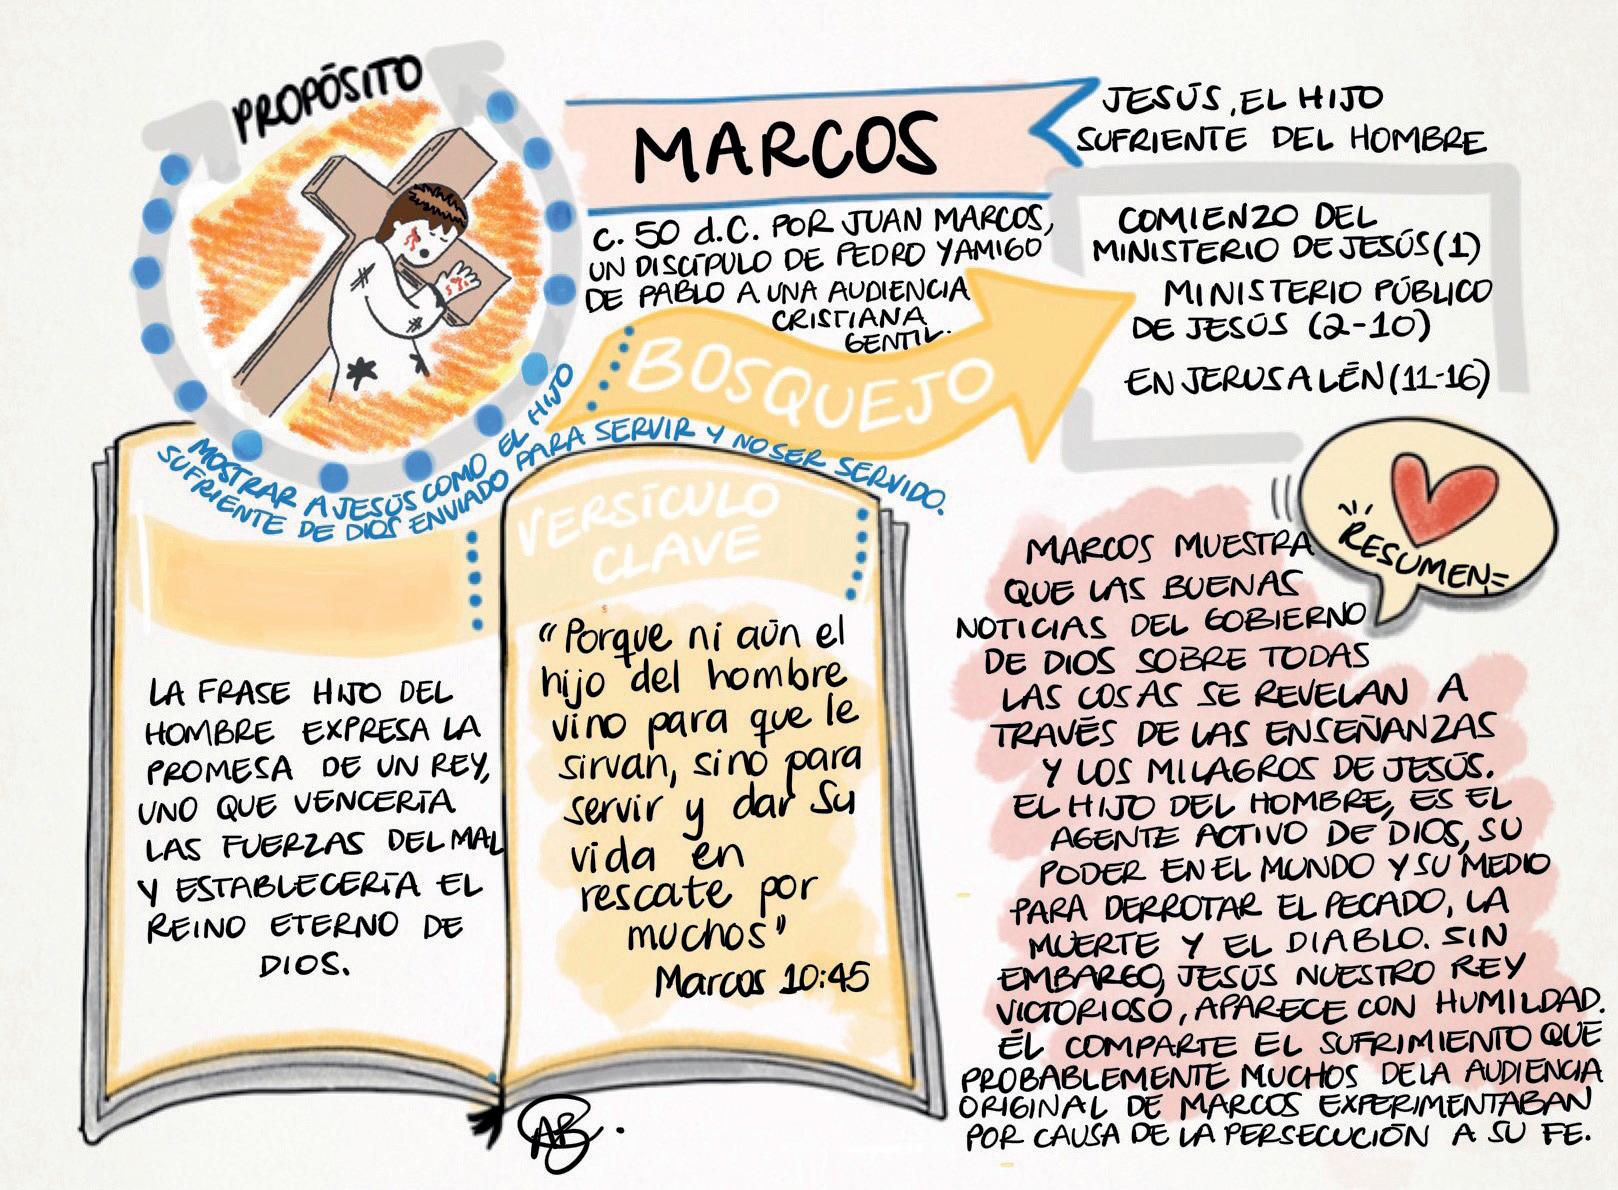 PROPÓSITO
MOSTRAR A JESÚS COMO EL HIJO
SUFRIENTE DE DIOS ENVIADO PARA SERVIR Y NO SER SERVIDO.
MARCOS
JESÚS, EL HIJO
SUFRIENTE DEL HOMBRE
C. 50 d.C. POR JUAN MARCOS,
UN DISCÍPULO DE PEDRO Y AMIGO
DE PABLO A UNA AUDIENCIA
CRISTIANA
GENTIL.
BOSQUEJO
COMIENZO DEL
MINISTERIO DE JESÚS (1)
MINISTERIO PÚBLICO
DE JESÚS (2-10)
EN JERUSALÉN (11-16)
LA FRASE HIJO DEL
HOMBRE EXPRESA LA
PROMESA DE UN REY,
UNO QUE VENCERÍA
LAS FUERZAS DEL MAL
Y ESTABLECERÍA EL
REINO ETERNO DE
DIOS.
VERSÍCULO
CLAVE
"Porque ni aún el
hijo del hombre
vino para que le
sirvan, sino para
servir y dar su
vida en
rescate por
muchos"
Marcos 10:45
RESUMEN
MARCOS MUESTRA
QUE LAS BUENAS
NOTICIAS DEL GOBIERNO
DE DIOS SOBRE TODAS
LAS COSAS SE REVELAN A
TRAVÉS DE LAS ENSEÑANZAS
Y LOS MILAGROS DE JESÚS.
EL HIJO DEL HOMBRE, ES EL
AGENTE ACTIVO DE DIOS, SU
PODER EN EL MUNDO Y SU MEDIO
PARA DERROTAR EL PECADO, LA
MUERTE Y EL DIABLO. SIN
EMBARGO, JESÚS NUESTRO REY
VICTORIOSO, APARECE CON HUMILDAD.
ÉL COMPARTE EL SUFRIMIENTO QUE
PROBABLEMENTE MUCHOS DE LA AUDIENCIA
ORIGINAL DE MARCOS EXPERIMENTABAN
POR CAUSA DE LA PERSECUCIÓN A SU FE.
AB.